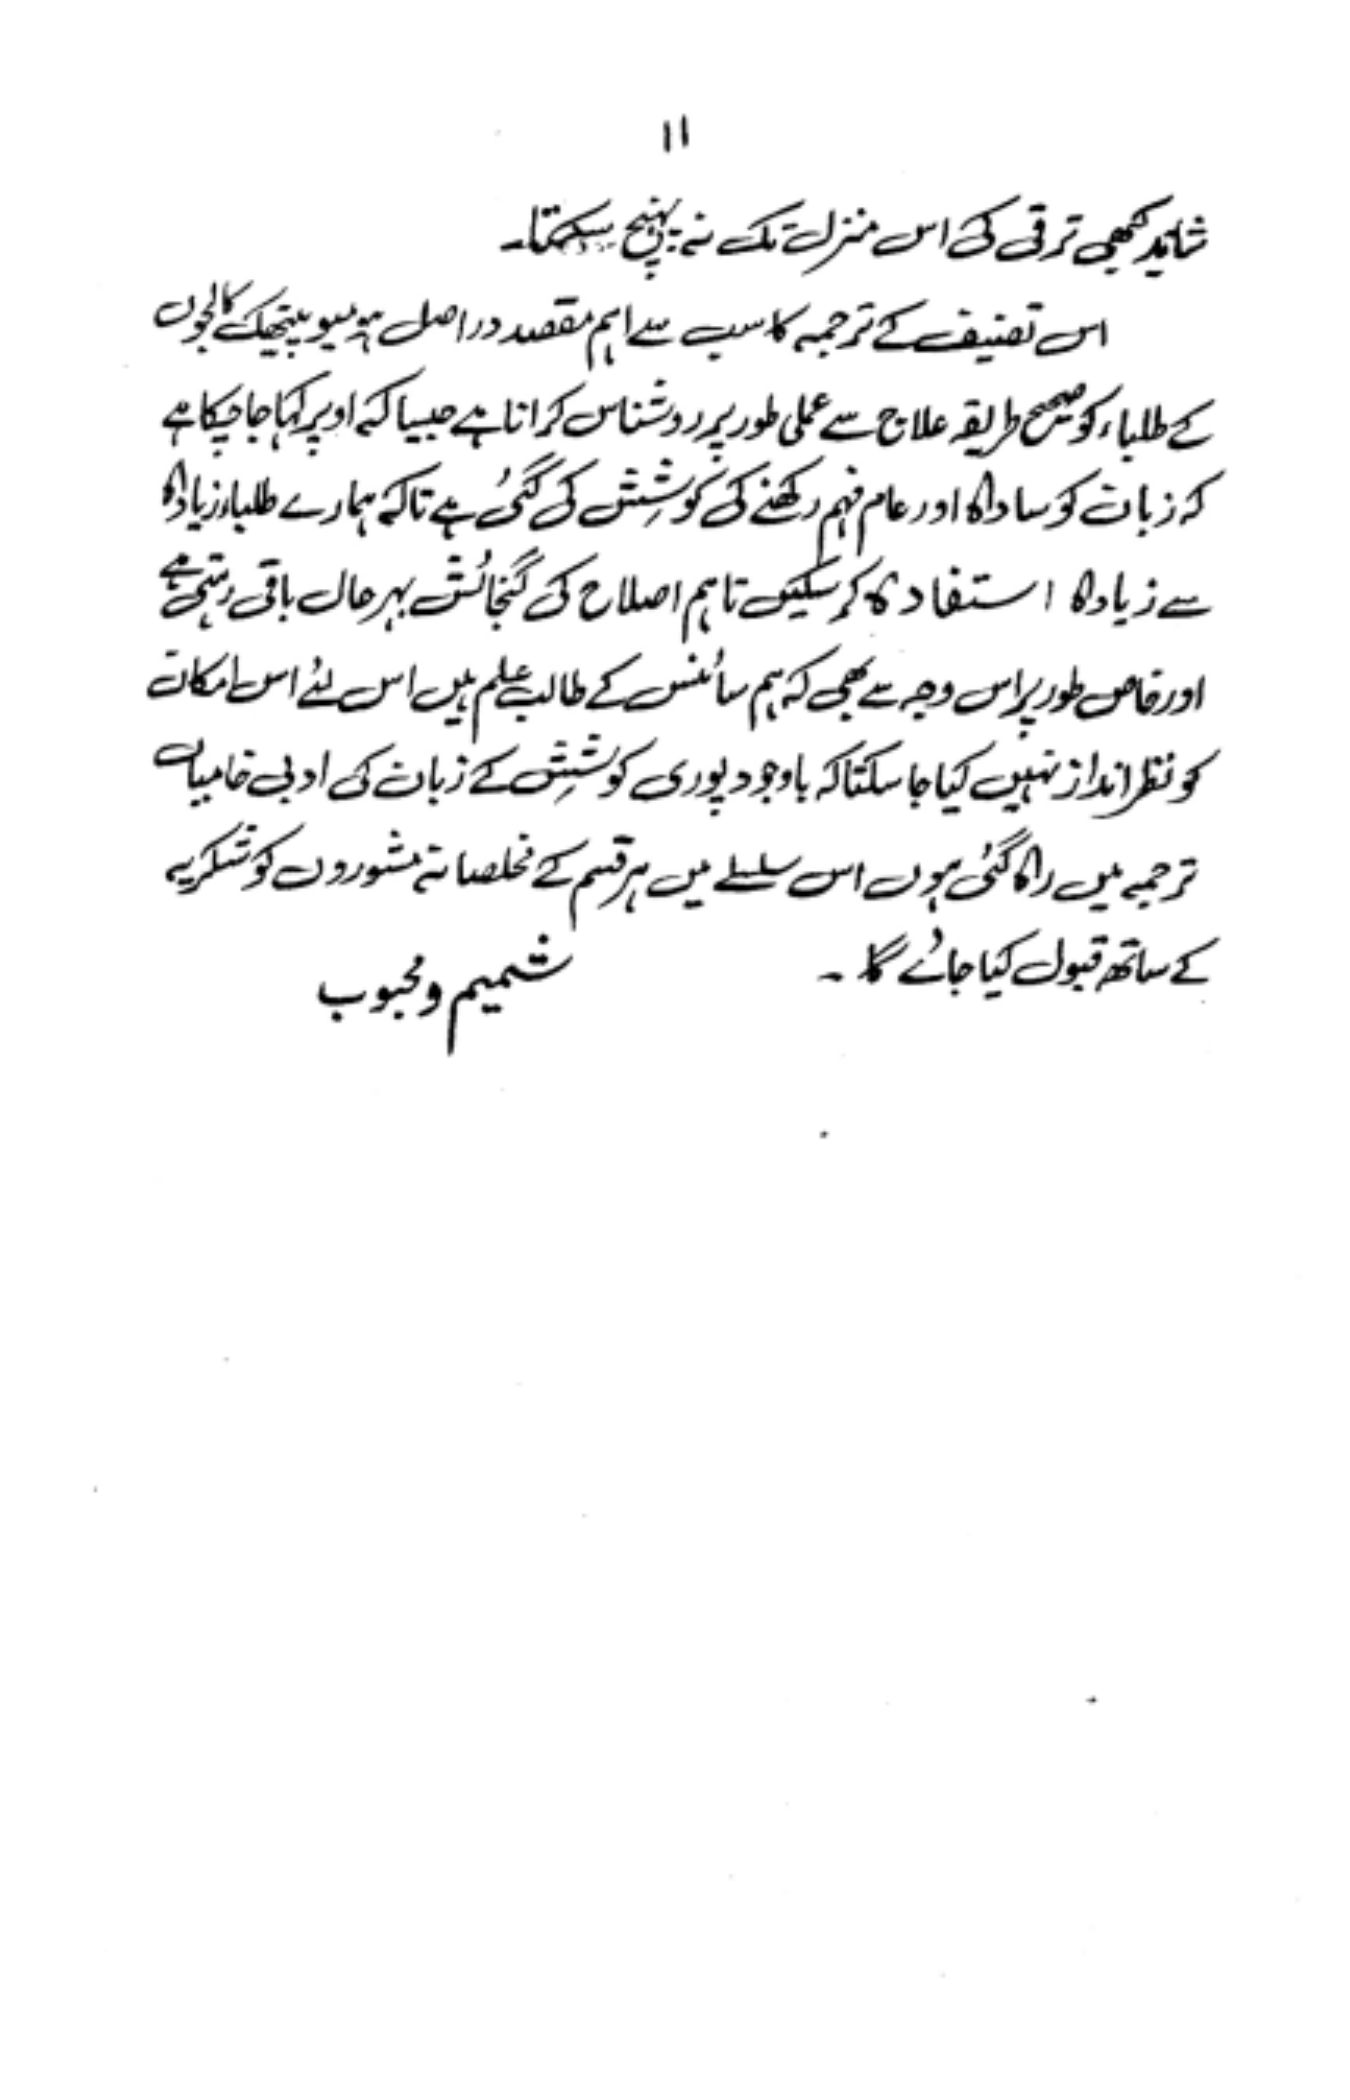 ۱۱
شاید کبھی ترقی کی اس منزل تک نہ پہنچ سکتا۔
اس تصنیف کے ترجمہ کا سب سے اہم مقصد دراصل ہومیوپیتھک کالجوں
کے طلباء کو صحیح طریقہ علاج سے عملی طور پر روشناس کرانا ہے جیسا کہ اوپر کہا جا چکا ہے
کہ زبان کو سادہ اور عام فہم رکھنے کی کوشش کی گئی ہے تاکہ ہمارے طلباء زیادہ
سے زیادہ استفادہ کر سکیں تاہم اصلاح کی گنجائش بہرحال باقی رہتی ہے
اور خاص طور پر اس وجہ سے بھی کہ ہم سائنس کے طالب علم ہیں اس لئے اس امکان
کو نظر انداز نہیں کیا جا سکتا کہ باوجود پوری کوشش کے زبان کی ادبی خامیاں
ترجمہ میں رہ گئی ہوں اس سلسلے میں ہر قسم کے مخلصانہ مشوروں کو شکریہ
کے ساتھ قبول کیا جائے گا۔
شمیم و محبوب